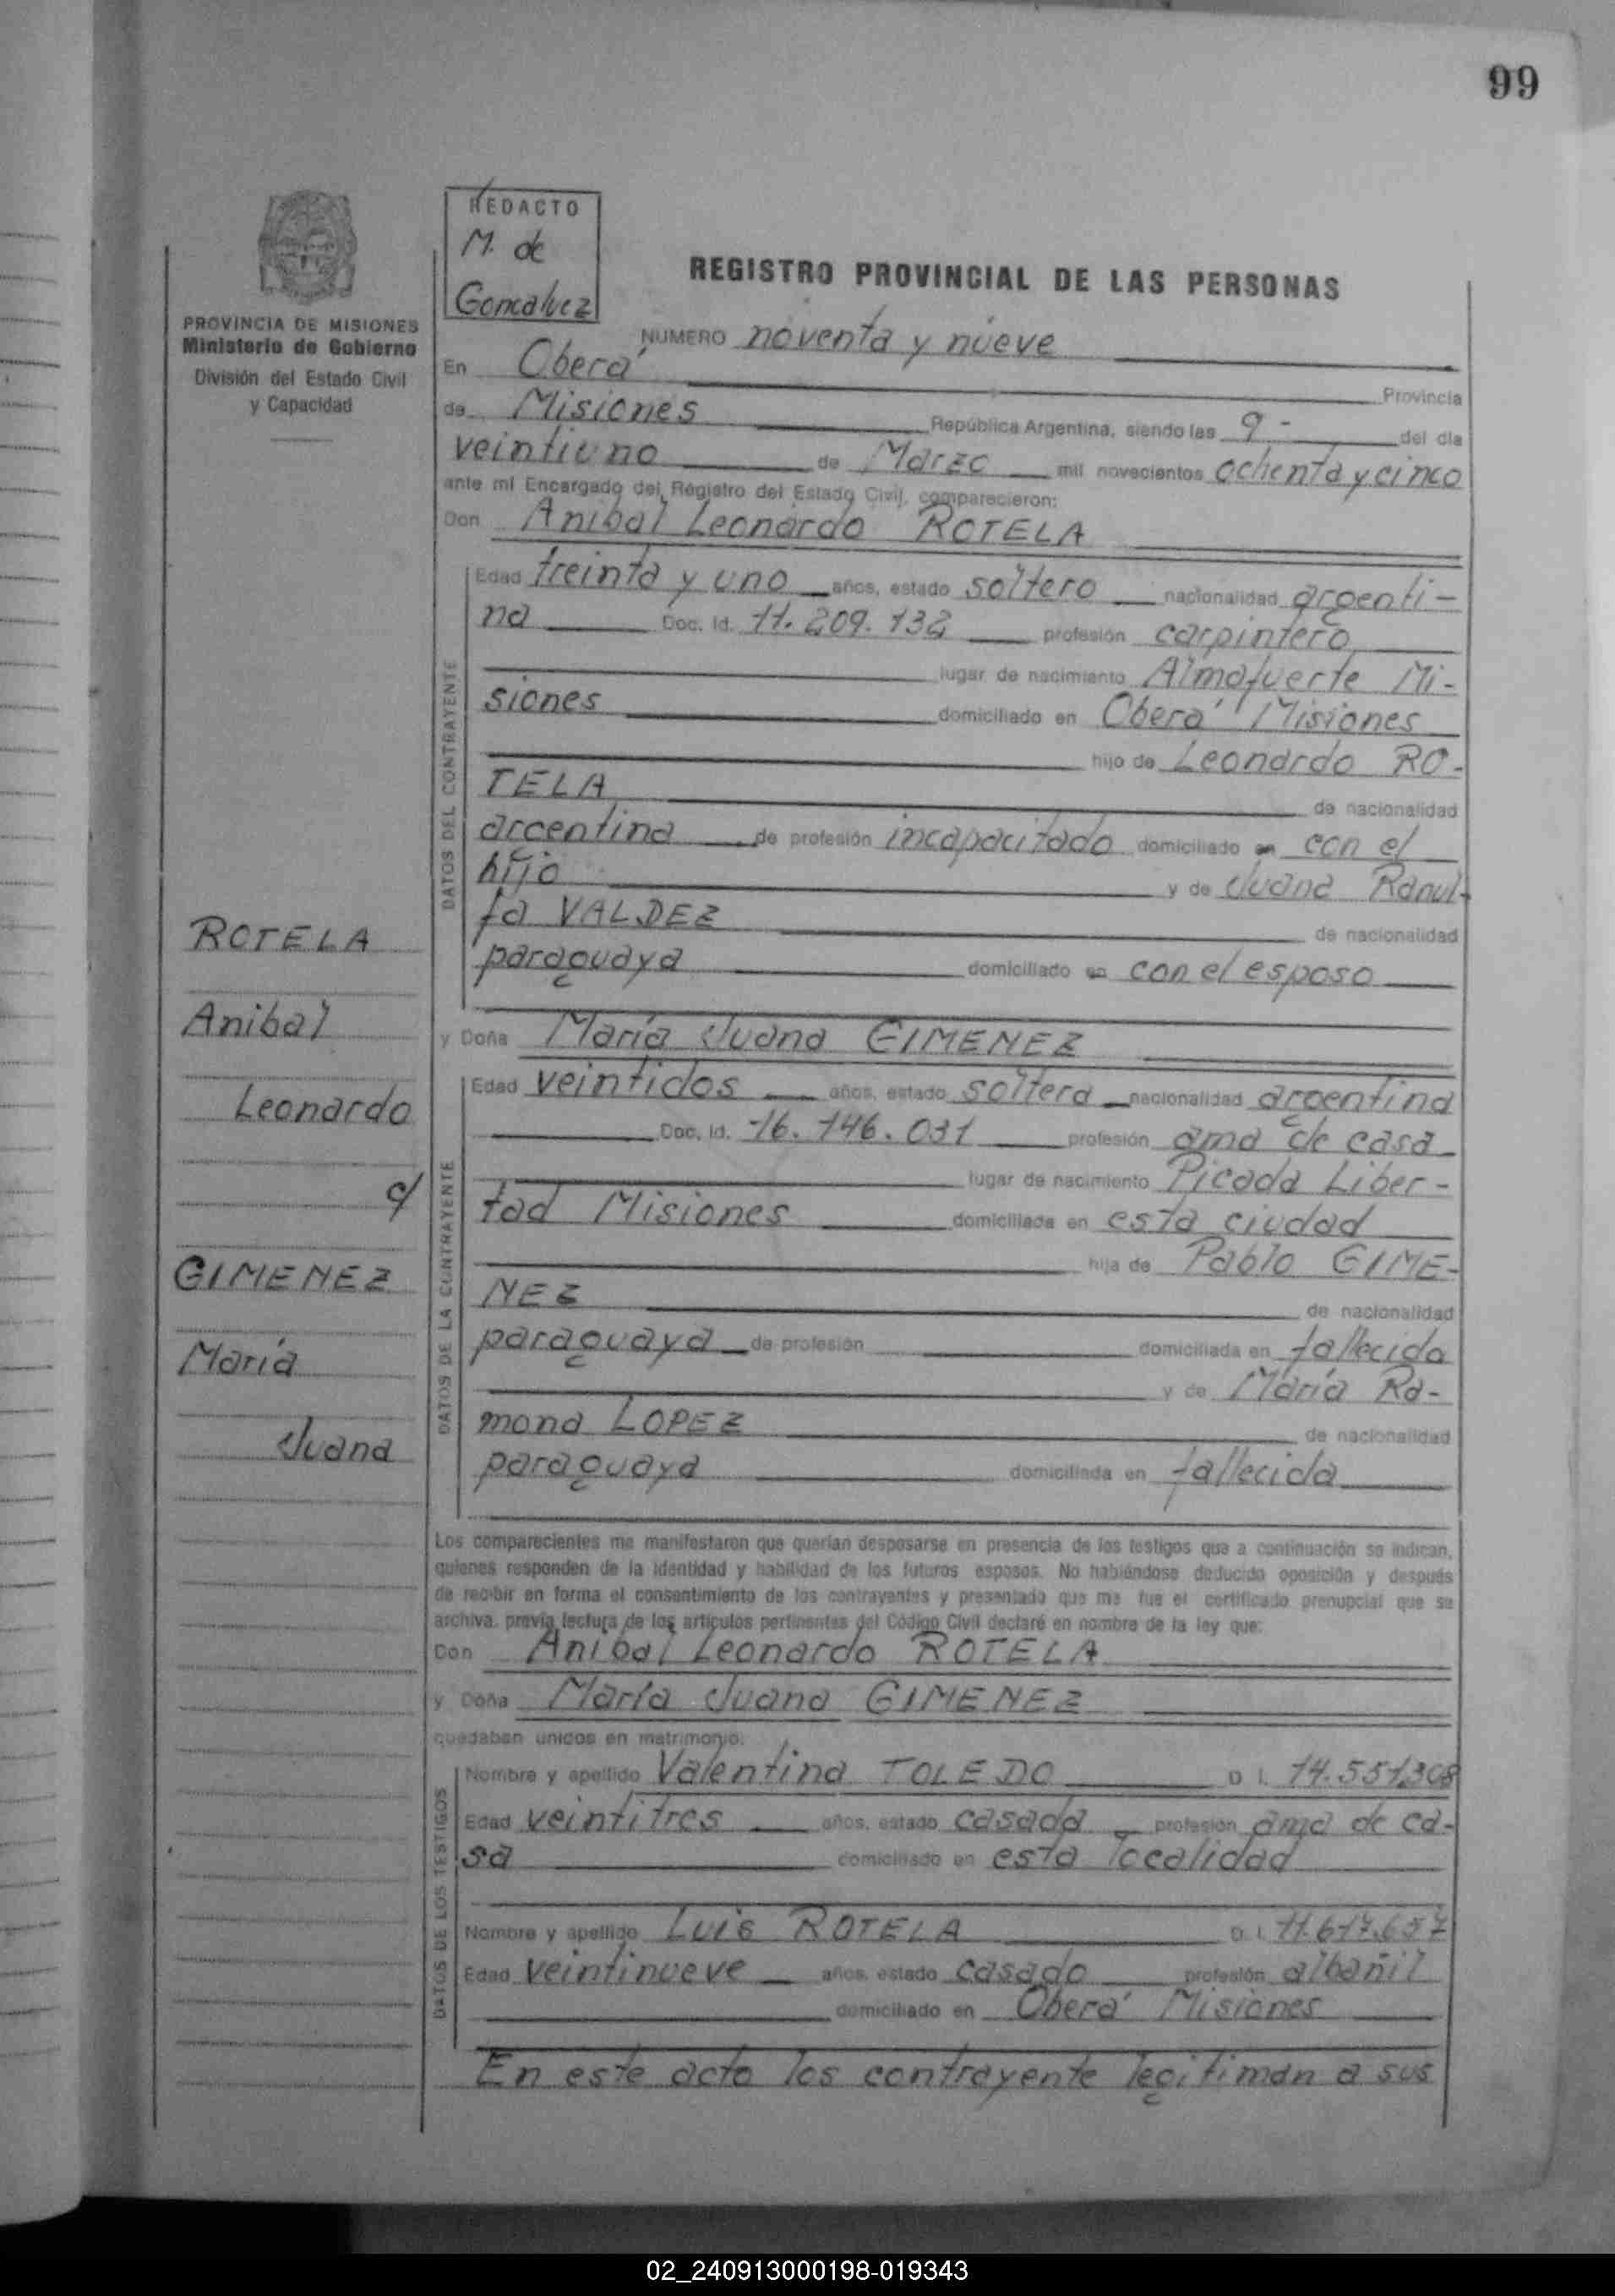 99
REDACTO
M. de
Goncalvez
REGISTRO PROVINCIAL DE LAS PERSONAS
PROVINCIA DE MISIONES
Ministerio de Gobierno
División del Estado Civil
y Capacidad
NUMERO noventa y nueve
En Oberá Provincia
de Misiones República Argentina, siendo las 9 - del dia
veintiuno de Marzo mil novecientos ochenta y cinco
ante mi Encargado del Registro del Estado Civil, comparecieron:
Don Anibal Leonardo ROTELA
DATOS DEL CONTRAYENTE
Edad treinta y uno años, estado soltero nacionalidad argenti-
na Doc. Id. 11.209.132 profesión carpintero
lugar de nacimiento Almafuerte Mi-
siones domiciliado en Oberá Misiones
hijo de Leonardo RO-
TELA de nacionalidad
argentina de profesión incapacitado domiciliado en con el
hijo y de Juana Ranul-
fa VALDEZ de nacionalidad
paraguaya domiciliado en con el esposo
y Doña María Juana GIMENEZ
DATOS DE LA CONTRAYENTE
Edad veintidos años, estado soltera nacionalidad argentina
Doc. Id. 16.146.031 profesión ama de casa
lugar de nacimiento Picada Liber-
tad Misiones domiciliada en esta ciudad
hija de Pablo GIME-
NEZ de nacionalidad
paraguaya de profesión domiciliada en fallecido
y de María Ra-
mona LOPEZ de nacionalidad
paraguaya domiciliada en fallecida
ROTELA
Anibal
Leonardo
c/
GIMENEZ
María
Juana
Los comparecientes me manifestaron que querían desposarse en presencia de los testigos que a continuación se indican,
quienes responden de la identidad y habilidad de los futuros esposos. No habiéndose deducido oposición y después
de recibir en forma el consentimiento de los contrayentes y presentado que me fue el certificado prenupcial que se
archiva, previa lectura de los artículos pertinentes del Código Civil declaré en nombre de la ley que:
Don Anibal Leonardo ROTELA
y Doña María Juana GIMENEZ
quedaban unidos en matrimonio.
DATOS DE LOS TESTIGOS
Nombre y apellido Valentina TOLEDO D. I. 14.551.308
Edad veintitres años, estado casada profesión ama de ca-
sa domiciliado en esta localidad
Nombre y apellido Luis ROTELA D. I. 11.617.657
Edad veintinueve años, estado casado profesión albañil
domiciliado en Oberá Misiones
En este acto los contrayente legitiman a sus
02_240913000198-019343